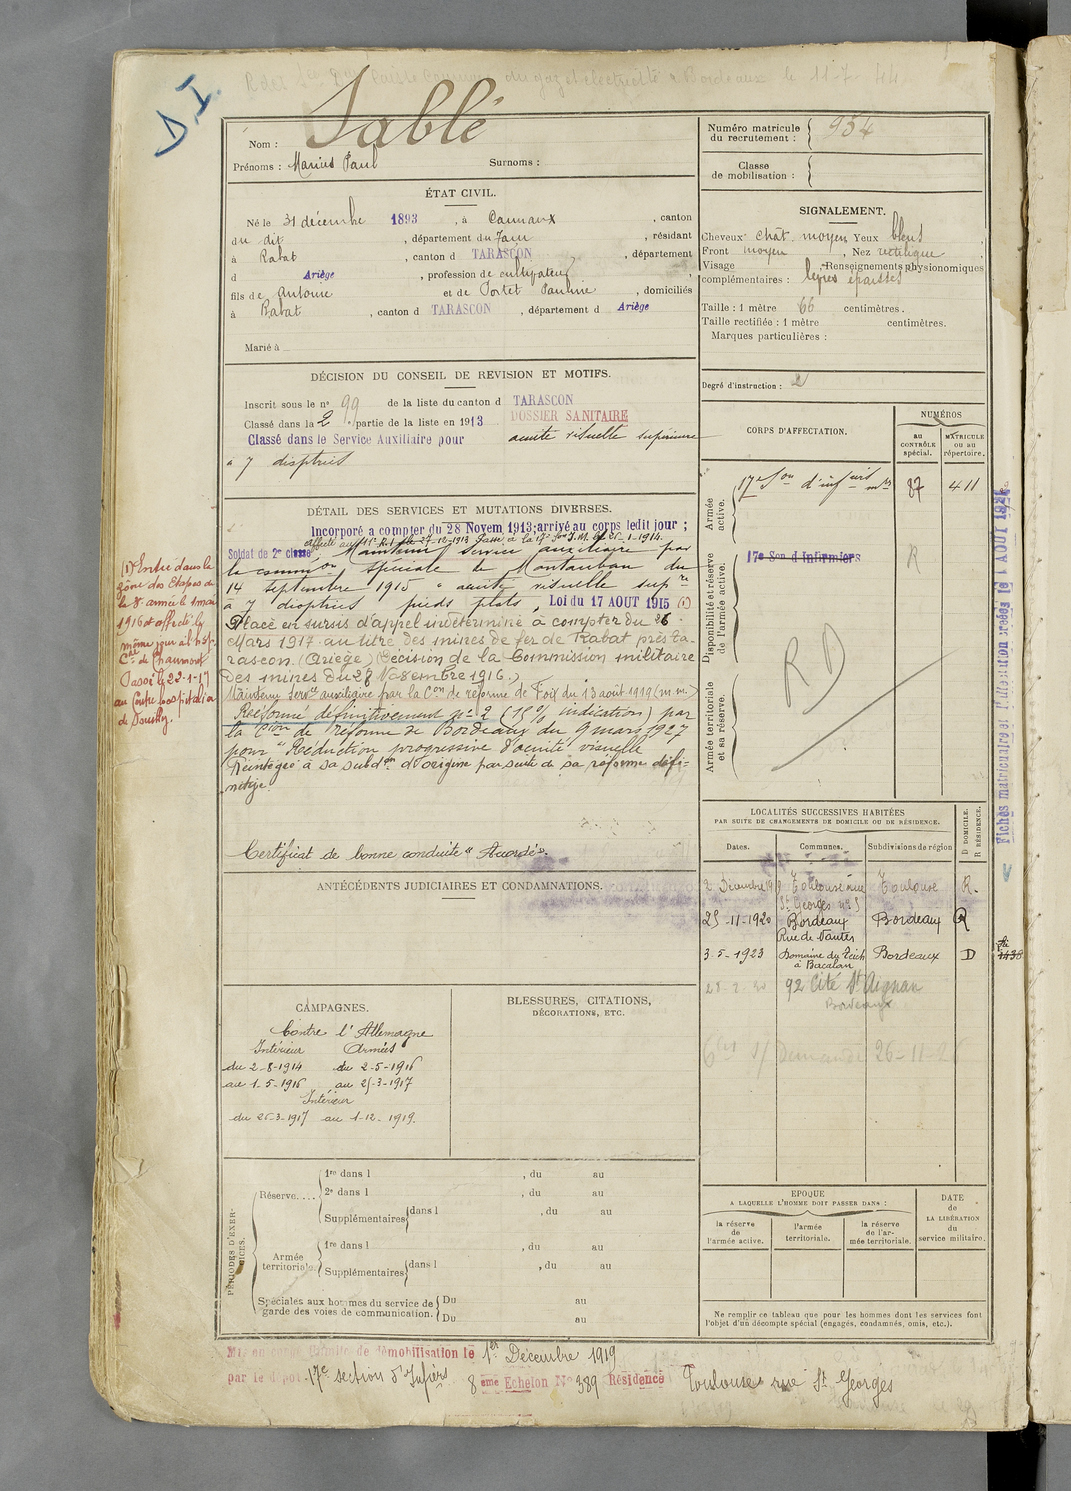 D.I.
Nom : Sablé
Prénoms : Marius Paul Surnoms :
Numéro matricule du recrutement : 954
Classe de mobilisation :
ÉTAT CIVIL.
Né le 31 décembre 1893, à Carmaux, canton
du dit, département du Tarn, résidant
à Rabat, canton d TARASCON, département
d Ariège, profession de cultivateur,
fils de Antoine et de Portet Pauline, domiciliés
à Rabat, canton d TARASCON, département d Ariège
Marié à
SIGNALEMENT.
Cheveux chât. moyen Yeux bleus,
Front moyen, Nez rectiligne,
Visage , Renseignements physionomiques
complémentaires : lèvres épaisses
Taille : 1 mètre 66 centimètres.
Taille rectifiée : 1 mètre centimètres.
Marques particulières :
Degré d'instruction : 2
DÉCISION DU CONSEIL DE REVISION ET MOTIFS.
Inscrit sous le n° 99 de la liste du canton d TARASCON
Classé dans la 2 partie de la liste en 1913 DOSSIER SANITAIRE
Classé dans le Service Auxiliaire pour acuité visuelle supérieure
à 7 dioptries
CORPS D'AFFECTATION.
NUMÉROS
AU CONTRÔLE spécial.
MATRICULE ou au répertoire.
Armée active.
17e Son d'infirs mres 87 411
Disponibilité et réserve de l'armée active.
17e Son d'Infirmiers R
RD
Armée territoriale et sa réserve.
DÉTAIL DES SERVICES ET MUTATIONS DIVERSES.
Incorporé a compter du 28 Novem 1913; arrivé au corps ledit jour ;
Soldat de 2e classe Maintenu service auxiliaire par
la common spéciale de Montauban du
14 septembre 1915 " acuité visuelle supre
à 7 dioptries pieds plats, Loi du 17 AOUT 1915 (1)
Placé en sursis d'appel indéterminé à compter du 26
Mars 1917 au titre des mines de fer de Rabat près Ta-
rascon. (Ariège) (Décision de la Commission militaire
des mines du 28 Novembre 1916.)
Maintenu Servce auxiliaire par la Con de réforme de Foix du 13 août 1919 (m. m.)
Réformé définitivement n° 2 (15 % indication) par
la Cion de réforme de Bordeaux du 9 mars 1927
pour "Réduction progressive d'acuité visuelle
Réintégré à sa subdon d'origine par suite de sa réforme défi-
nitive.
Certificat de bonne conduite "Accordé".
(1) Entré dans la
zône des Etapes de
la 8e armée le 1 mai
1916 et affecté le
même jour à l'hôp.
Cre de Chaumont
Passé le 22-1-17
au Centre hospitalier
Fiches matriculaire et d'allocution créées le 1 AOUT 1921
ANTÉCÉDENTS JUDICIAIRES ET CONDAMNATIONS.
LOCALITÉS SUCCESSIVES HABITÉES
PAR SUITE DE CHANGEMENTS DE DOMICILE OU DE RÉSIDENCE.
D DOMICILE. R RÉSIDENCE.
Dates. Communes. Subdivisions de région
2 Décembre 19 Toulouse rue St Georges n° 5 Toulouse R.
25-11-1920 Bordeaux Rue de Nantes Bordeaux R
3-5-1923 Domaine du Teich à Bacalan Bordeaux D
92 Cité St Aignan
Bordeaux
Demande 26-11-
CAMPAGNES.
Contre l'Allemagne
Intérieur Armées
du 2-8-1914 du 2-5-1916
au 1-5-1916 au 25-3-1917
Intérieur
du 26-3-1917 au 1-12-1919.
BLESSURES, CITATIONS,
DÉCORATIONS, ETC.
PÉRIODES D'EXERCICES.
Réserve....
1re dans l , du au
2e dans l , du au
Supplémentaires dans l , du au
Armée territoriale.
1re dans l , du au
Supplémentaires dans l , du au
Spéciales aux hommes du service de
garde des voies de communication.
Du au
Du au
EPOQUE
A LAQUELLE L'HOMME DOIT PASSER DANS :
la réserve de l'armée active.
l'armée territoriale.
la réserve de l'armée territoriale.
DATE de LA LIBÉRATION du service militaire.
Ne remplir ce tableau que pour les hommes dont les services font
l'objet d'un décompte spécial (engagés, condamnés, omis, etc.).
Mis en congé illimité de démobilisation le 1er Décembre 1919
par le dépôt 17e section d'Infiers 8eme Echelon N° 389 Résidence Toulouse rue St Georges